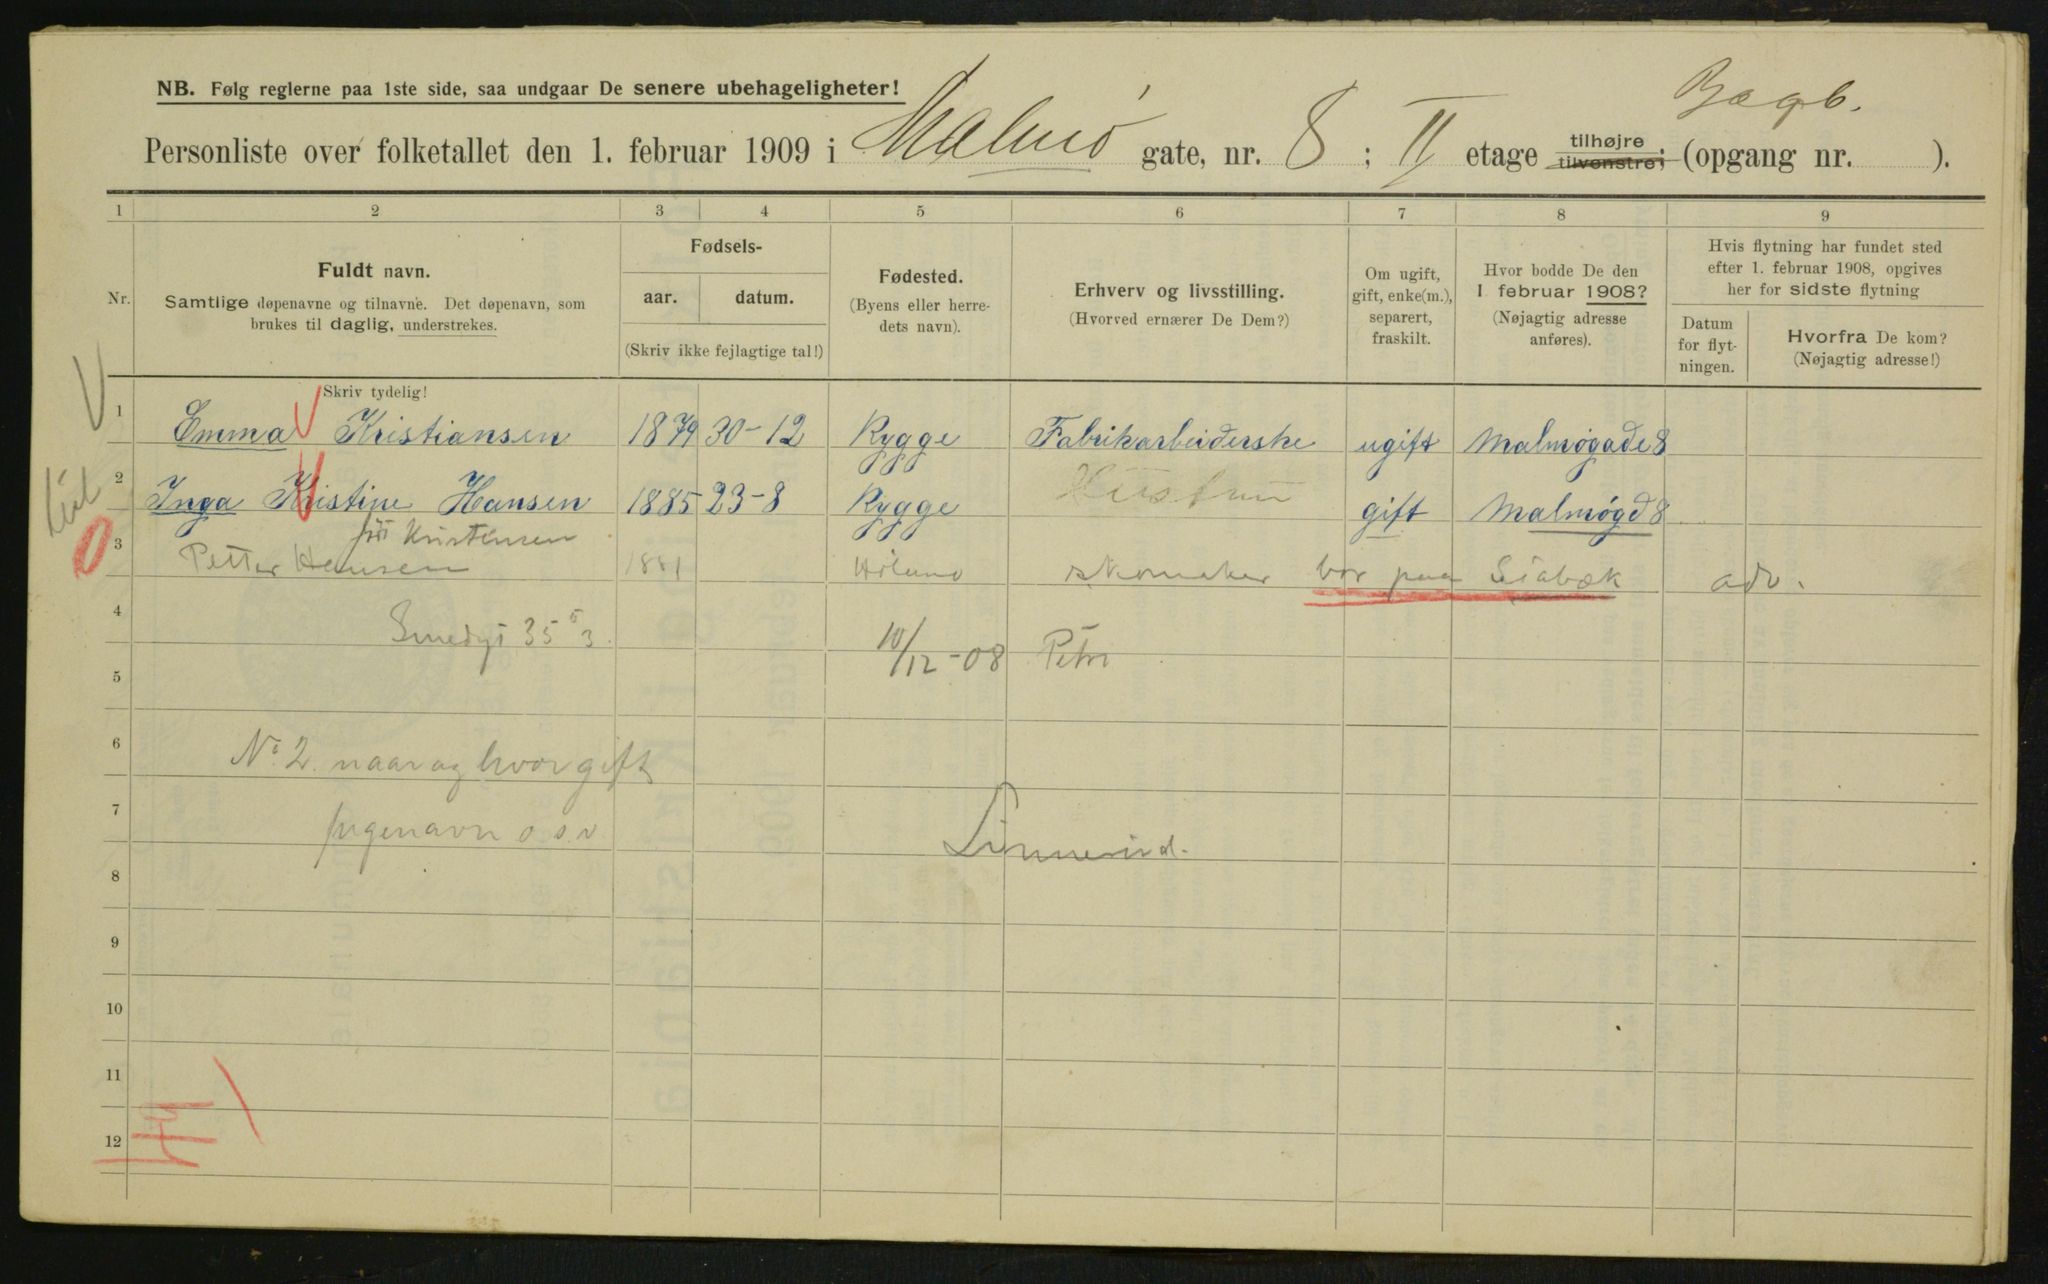 NB. Følg reglerne paa 1ste side, saa undgaar De senere ubehageligheter!
Bagb.
Personliste over folketallet den 1. februar 1909 i Malmö gate, nr. 8 ; II etage tilhøjre tilvenstre; (opgang nr. ).
1 2 3 4 5 6 7 8 9
Nr.
Fuldt navn.
Samtlige døpenavne og tilnavne. Det døpenavn, som
brukes til daglig, understrekes.
Fødsels-
aar. datum.
(Skriv ikke fejlagtige tal!)
Fødested.
(Byens eller herre-
dets navn).
Erhverv og livsstilling.
(Hvorved ernærer De Dem?)
Om ugift,
gift, enke(m.),
separert,
fraskilt.
Hvor bodde De den
1 februar 1908?
(Nøjagtig adresse
anføres).
Hvis flytning har fundet sted
efter 1. februar 1908, opgives
her for sidste flytning
Datum
for flyt-
ningen.
Hvorfra De kom?
(Nøjagtig adresse!)
Skriv tydelig!
1 Emma Kristiansen 1879 30-12 Rygge Fabrikarbeiderske ugift Malmøgade 8
2 Inga Kristine Hansen 1885 23-8 Rygge Hustru gift Malmøgd 8
født Kristensen
3 Petter Hansen 1881 Høland skomaker bor paa adr.
4 35 3
10/12-08 Petri
5
6 No 2. naar og hvor gift
7 pigenavn o s v
8
9
10
11
12